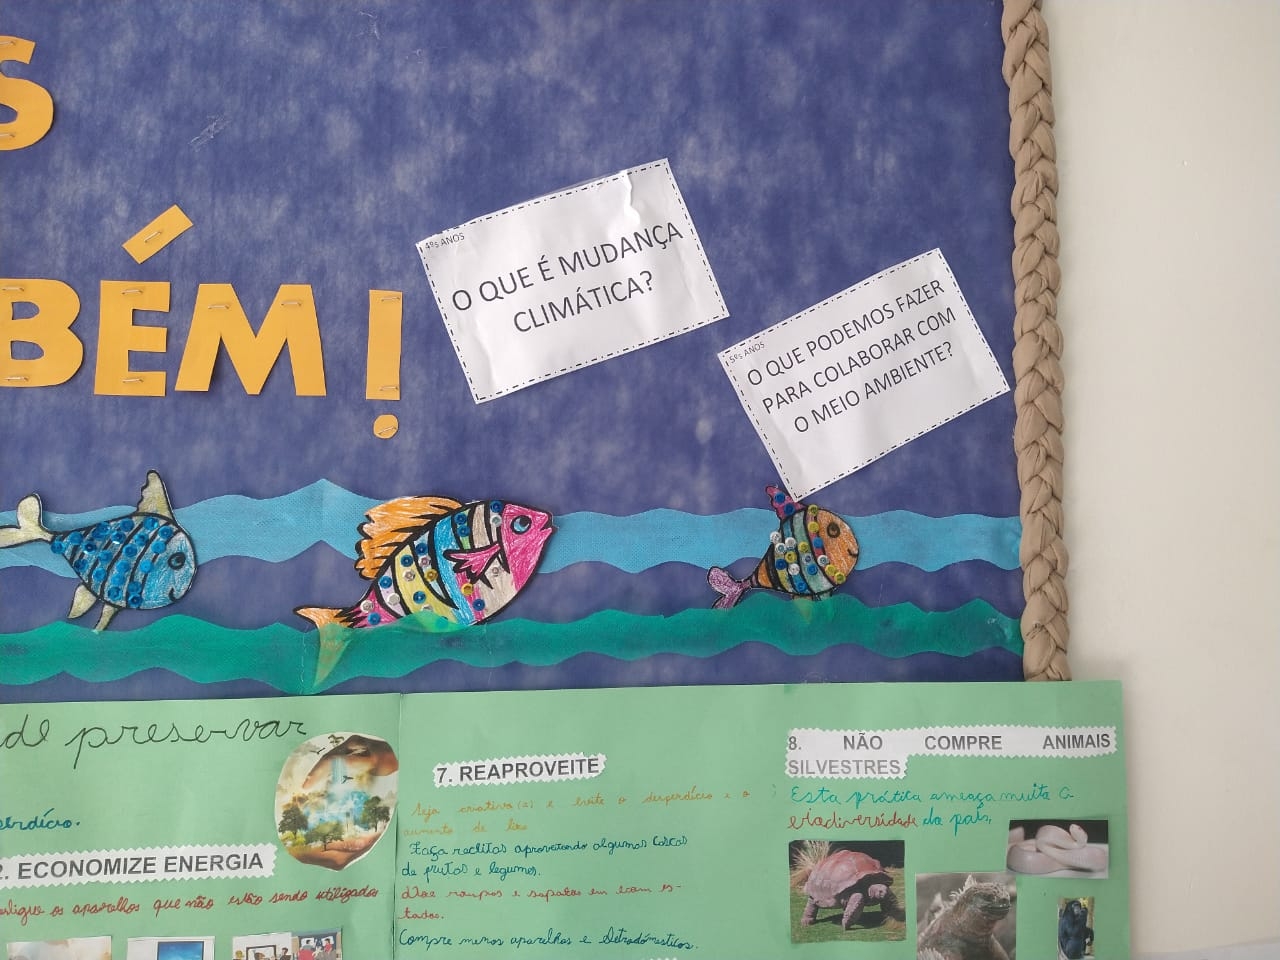 S
BÉM!
4ºs ANOS
O QUE É MUDANÇA
CLIMÁTICA?
5ºs ANOS
O QUE PODEMOS FAZER
PARA COLABORAR COM
O MEIO AMBIENTE?
de preservar
erdício.
2. ECONOMIZE ENERGIA
esligue os aparelhos que não estão sendo utilizados
7. REAPROVEITE
Seja criativo(a) e evite o desperdício e o
aumento de lixo
Faça receitas aproveitando algumas cascas
de frutas e legumes.
Doe roupas e sapatos em bom es-
tados.
Compre menos aparelhos e eletrodomésticos.
8. NÃO COMPRE ANIMAIS
SILVESTRES
Esta prática ameaça muita a
biodiversidade do país.